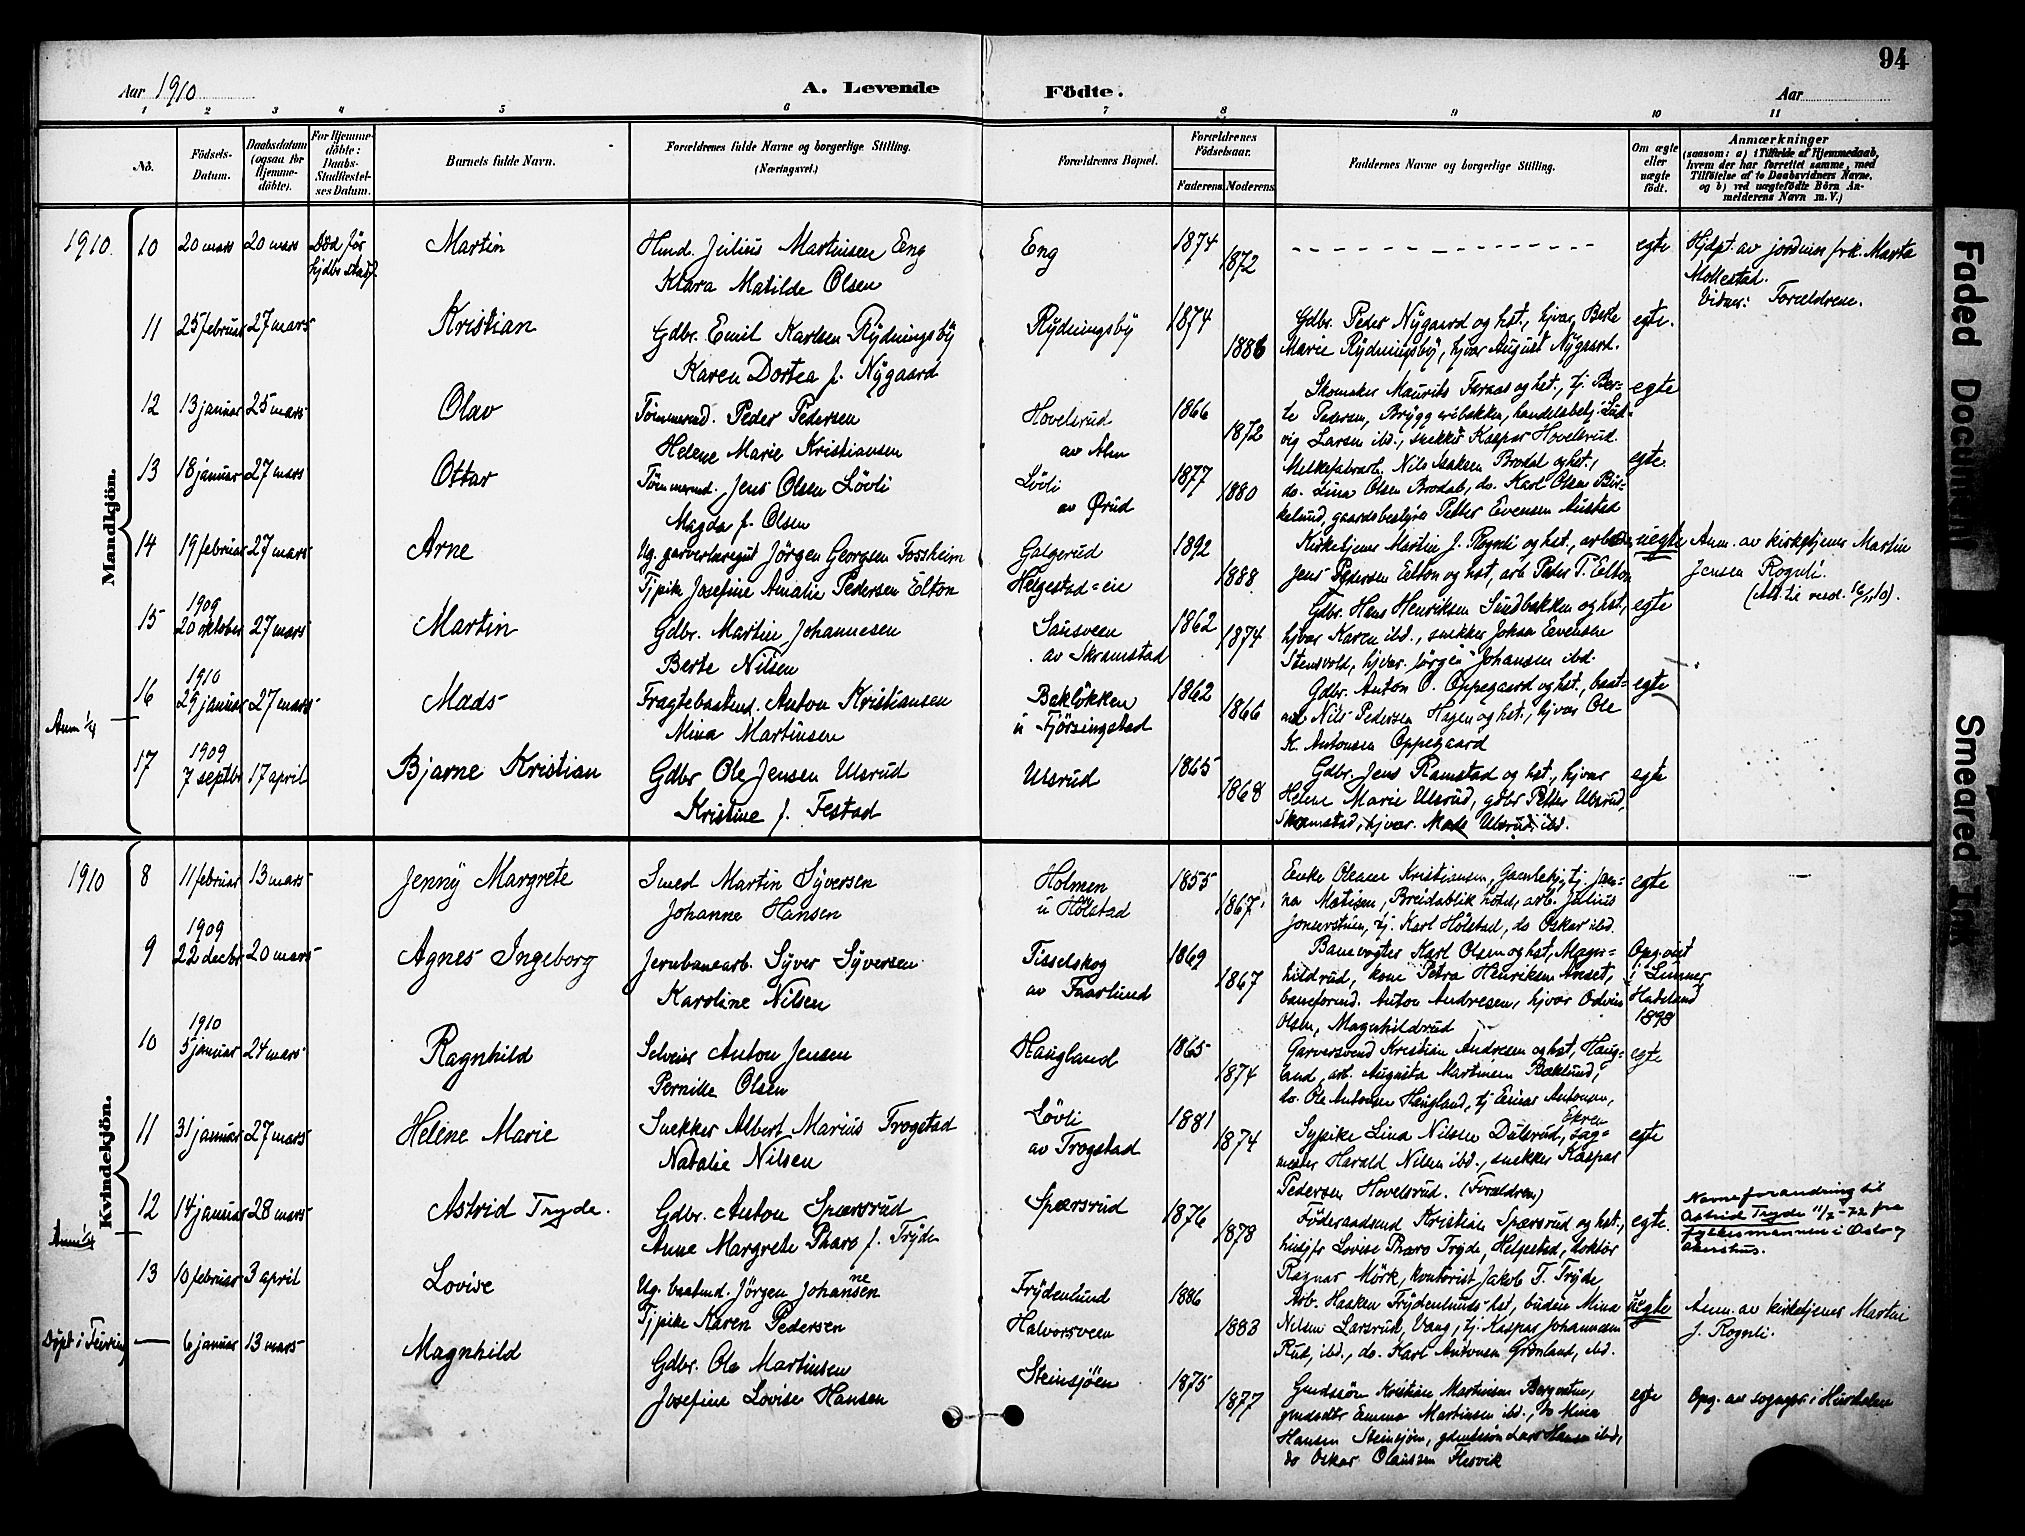 94
Aar 1910
A. Levende Födte.
Aar
1 2 3 4 5 6 7 8 9 10 11
No.
Födsels-Datum.
Daabsdatum (ogsaa for Hjemme-döbte).
For Hjemme-döbte: Daabs-Stadfæstel-ses Datum.
Barnets fulde Navn.
Forældrenes fulde Navne og borgerlige Stilling. (Næringsvei.)
Forældrenes Bopæl.
Forældrenes Födselsaar.
Faderens Moderens
Faddernes Navne og borgerlige Stilling.
Om ægte eller uægte födt.
Anmærkninger
(saasom: a) i Tilfælde af Hjemmedaab,
hvem der har forrettet samme, med
Tilföielse af to Daabsvidners Navne,
og b) ved uægtefödte Börn An-
melderens Navn m. V.)
Mandkjön.
1910 10 20 mars 20 mars Död før hjdbs stadf. Martin
Julius Martinsen Eng
Klara Matilde Olsen
Eng 1874 1872 egte
Hjdpt. av jordmor frk. Marta
Mollestad.
Vidner: Forældrene.
11 25 februar 27 mars Kristian
Gdbr. Emil Karlsen Rydningsby
Karen Dortea f. Nygaard
Rydningsby 1874 1886
Gdbr. Peder Nygaard og hst., hjvar
Marie Rydningsby, hjvar August Nygaard.
egte.
12 13 januar 25 mars Olav
Tømmermd. Peder Pedersen
Helene Marie Kristiansen
Hovelsrud
av Alm
1866 1872
Skomaker Maurits og hst., tj. Ber-
te Pedersen, handelsbetj. Lud-
vig Larsen ibd., snekker Kaspar Hovelsrud.
egte
13 18 januar 27 mars Ottar
Tømmermd. Jens Olsen Lövli
Magda f. Olsen
Lövli
av Ørud
1877 1880
Melkefabrarb. Nils Isaksen Brodal og hst.,
do. Lina Olsen Brodal, do. Karl Olsen Bir-
kelund, gaardsbestyrer Petter Evensen
egte.
14 19 februar 27 mars Arne
Ug. garverlæregut Jörgen Georgsen Fossheim
Tjpike Josefine Amalie Pedersen Elton
Galgerud
Helgestad-eie
1892 1888
Kirketjener Martin J. Rognli og hst., arb
Jens Pedersen Elton og hst., arb. Peder T. Elton
uegte
Anm. av kirketjener Martin
Jensen Rognli.
15 1909 20 oktober 27 mars Martin
Gdbr. Martin Johannesen
Berte Nilsen
Sausveen
av Skramstad
1862 1874
Gdbr. Hans Henriksen Sundbakken og hst.,
hjvar Karen ibd., snekker Johan Evensen
Stensvold, hjvar. Jørgen Johansen ibd.
egte
16 1910 29 januar 27 mars Mads
Fragtebaatmd. Anton Kristiansen
Mina Martinsen
Bakløkken
u Fjörsingstad
1862 1866
Gdbr. Anton O. Oppegaard og hst., baat-
md Nils Pedersen Hagen og hst., hjvar Ole
K. Antonsen Oppegaard
egte
Anm 1/4
17 1909 7 septbr 17 april Bjarne Kristian
Gdbr Ole Jensen Ulsrud
Kristine f. Festad
Ulsrud 1865 1868
Gdbr. Jens Ramstad og hst., hjvar
Helene Marie Ulsrud, gdbr Petter Ulsrud,
Skramstad, hjvar. Mads Ulsrud, ibd.
egte
Kvindekjön.
1910 8 11 februar 13 mars Jenny Margrete
Smed Martin Syversen
Johanne Hansen
Holmen
u Hölstad
1855 1867
Enke Oleane Kristiansen, tj. Jen-
ny Breidablik hotel, arb. Julius
tj. Karl Hölstad, do Oskar ibd.
egte
9 1909 22 decbr 20 mars Agnes Ingeborg
Jernbanearb. Syver Syversen
Karoline Nilsen
Tisselskog
av Faarlund
1869 1867
Banevogter Karl Olsen og hst., Magn-
hildrud, kone Petra Henriksen
baneformd. Anton Andresen, hjvar Odvin
Olsen, Magnhildrud
Opg. viet
i Lunner
Hadeland
1898
10 1910 5 januar 24 mars Ragnhild
Selveier Anton Jensen
Pernille Olsen
Haugland 1865 1874
Garversvend Kristian Andresen og hst., Haug-
land, arb. Augusta Martinsen Baklund,
do. Ole Antonsen Haugland, tj. Einar Antonsen,
egte
11 31 januar 27 mars Helene Marie
Snekker Albert Marius Trogstad
Natalie Nilsen
Lövli
av Trogstad
1881 1874
Sypike Lina Nilsen Dulsrud, Sag-
mester Harald Nilsen ibd., snekker Kaspar
Pedersen Hovelsrud. (Forældren)
egte
12 14 januar 28 mars Astrid Tryde.
Gdbr. Anton Spærsrud
Anne Margrete Pharo f. Tryde
Spærsrud 1876 1878
Föderaadsmd Kristian Spærsrud og hst.,
husjfr Lovise Pharo Tryde, Helgestad, doktor
Ragnar Mörk, kontorist Jakob T. Tryde
egte.
Navneforandring til
Astrid Tryde 11/7-72 fra
fylkesmannen i Oslo og
Akershus.
Anm 1/4
13 10 februar 3 april Lovise
Ug. baatmd. Jörgen Johannesen
Tjpike Karen Pedersen
Frydenlund
Halvorsveen
1886 1883
Arb. Haaken Frydenlunds hst., budeie Mina
Nilsen Larsrud, Vang, tj. Kaspar Johannesen
Rud, ibd., do. Karl Antonsen Grönland, ibd.
uegte
Anm. av kirketjener Martin
J. Rognli.
Döpt i Feiring — 6 januar 13 mars Magnhild
Gdbr. Ole Martinsen
Josefine Lovise Hansen
Steinsjöen 1875 1877
Gmdssön Kristian Martinsen
gmdsdtr Emma Martinsen ibd., do Mina
Hansen Steinsjöen, gdmdssön Lars Hansen ibd.,
do Oskar Olaussen Flesvik
egte
Opg. av sogneprs. i Hurdalen
Faded Document
Smeared Ink